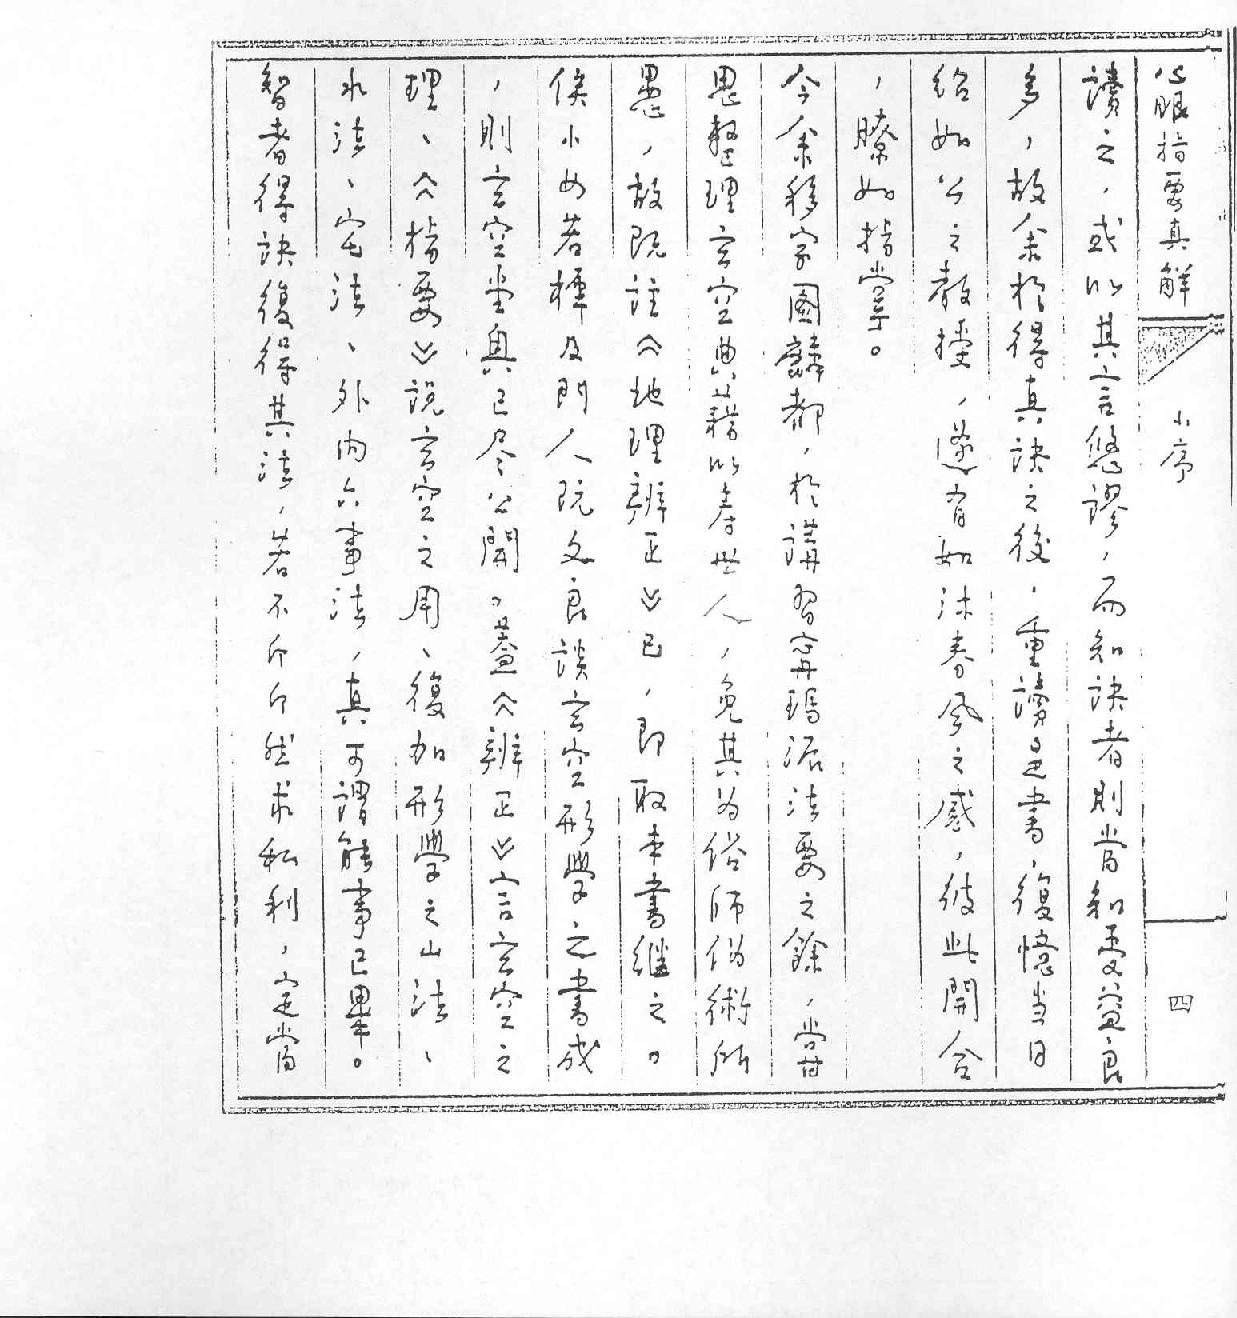 心眼指要真解 小序 四
讀之，或以其言悠謬，而知訣者則當知受益良
多，故余於得真訣之後，重讀是書，復憶當日
給如公之教授，遂有如沐春風之感，彼此開合
，瞭如指掌。
今余移家圖麟都，於講習甯瑪派法要之餘，嘗
思整理玄空典籍以壽世人，免其為俗師偽術所
愚，故既註《地理辨正》已，即取本書繼之。
俟小女若樺及門人阮文良談玄空形學之書成
，則玄空堂奧已盡公開。蓋《辨正》言玄空之
理、《指要》說玄空之用、復加形學之山法、
水法、宅法、外內六事法，真可謂能事已畢。
智者得訣復得其法，若不卬卬然求私利，定當